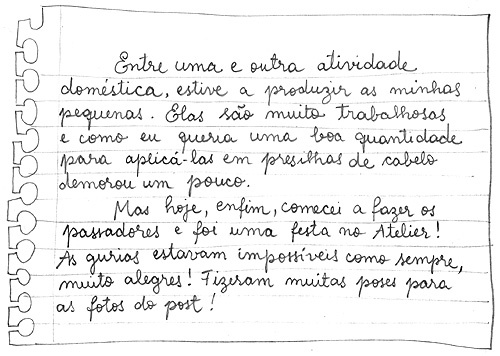 Entre uma e outra atividade
doméstica, estive a produzir as minhas
pequenas. Elas são muito trabalhosas
e como eu queria uma boa quantidade
para aplicá-las em presilhas de cabelo
demorou um pouco.
Mas hoje, enfim, comecei a fazer os
passadores e foi uma festa no Atelier!
As gurias estavam impossíveis como sempre,
muito alegres! Fizeram muitas poses para
as fotos do post!